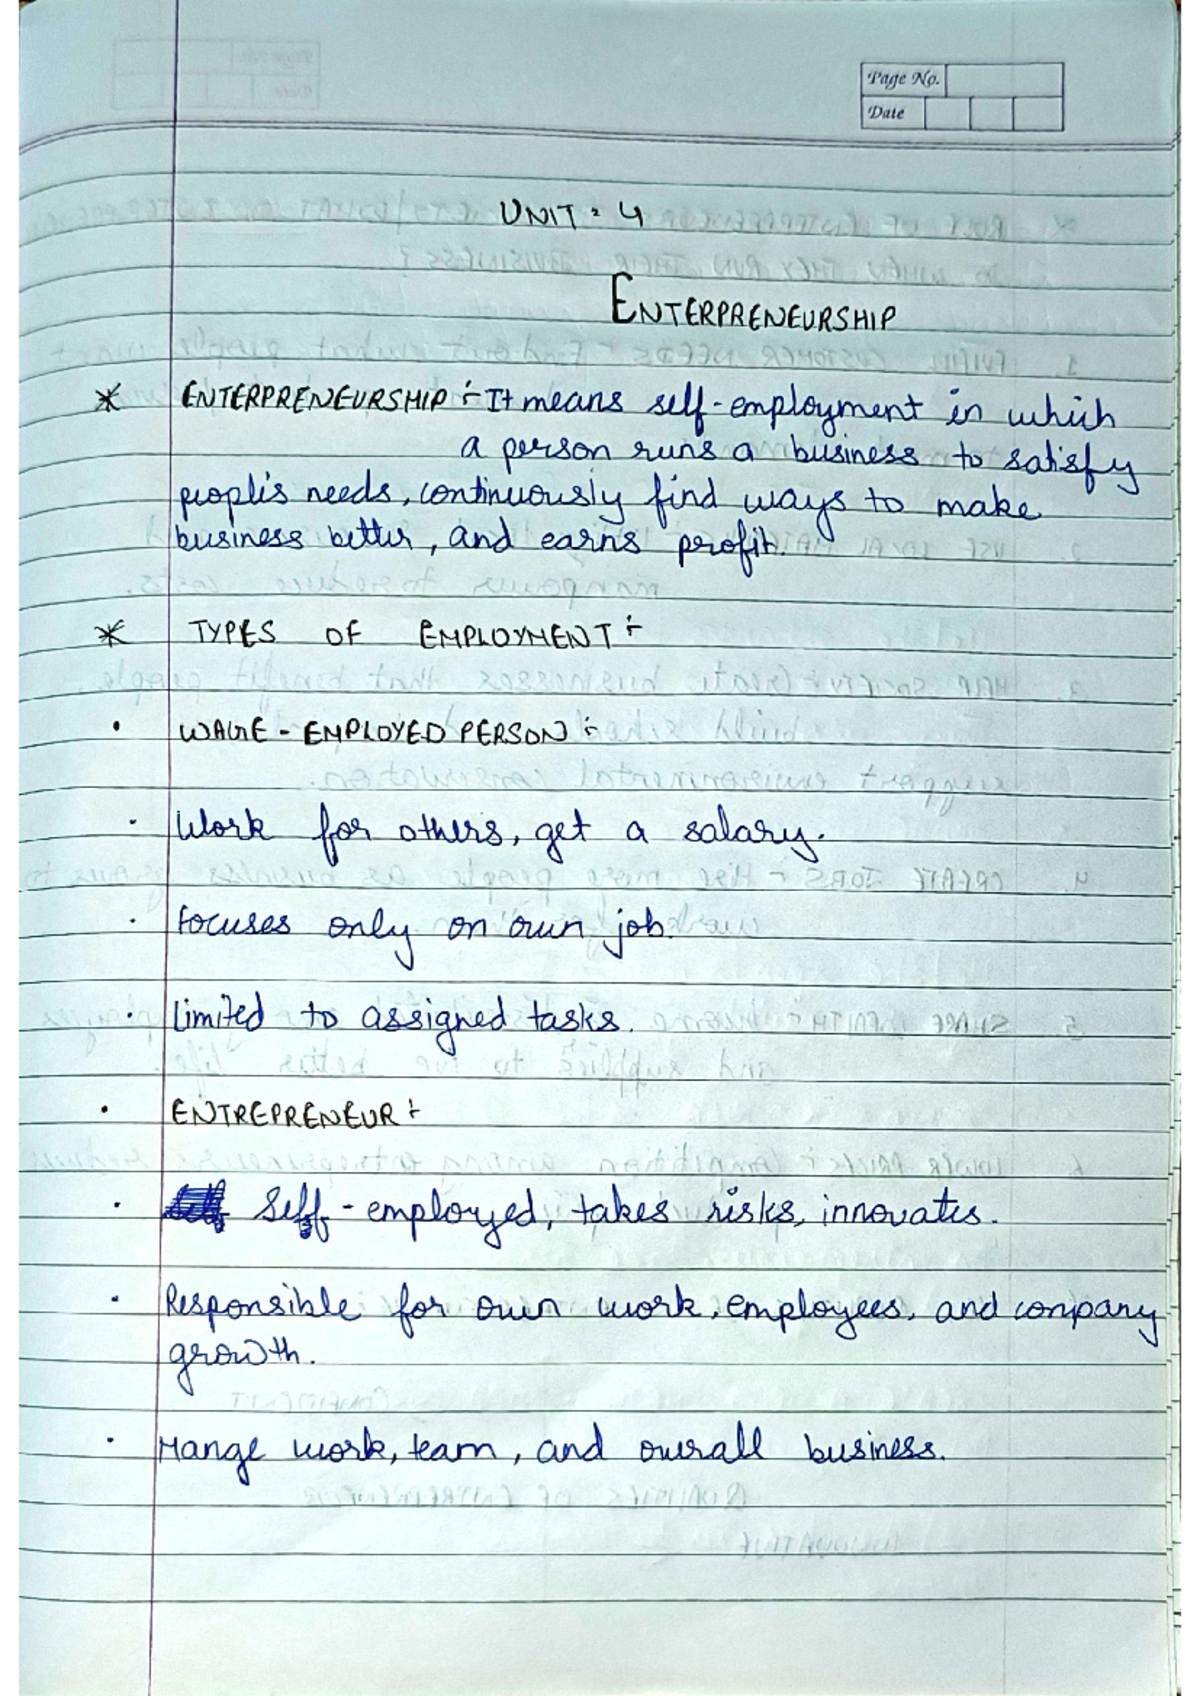 Page No.
Date
UNIT : 4
ENTERPRENEURSHIP
* ENTERPRENEURSHIP :- It means self-employment in which
a person runs a business to satisfy
people's needs, continuously find ways to make
business better, and earns profit.
* TYPES OF EMPLOYMENT :-
• WAGE - EMPLOYED PERSON :-
• Work for others, get a salary.
• Focuses only on own job.
• Limited to assigned tasks.
• ENTREPRENEUR :-
• Self - employed, takes risks, innovates.
• Responsible for own work, employees, and conpany
growth.
• Mange work, team, and overall business.